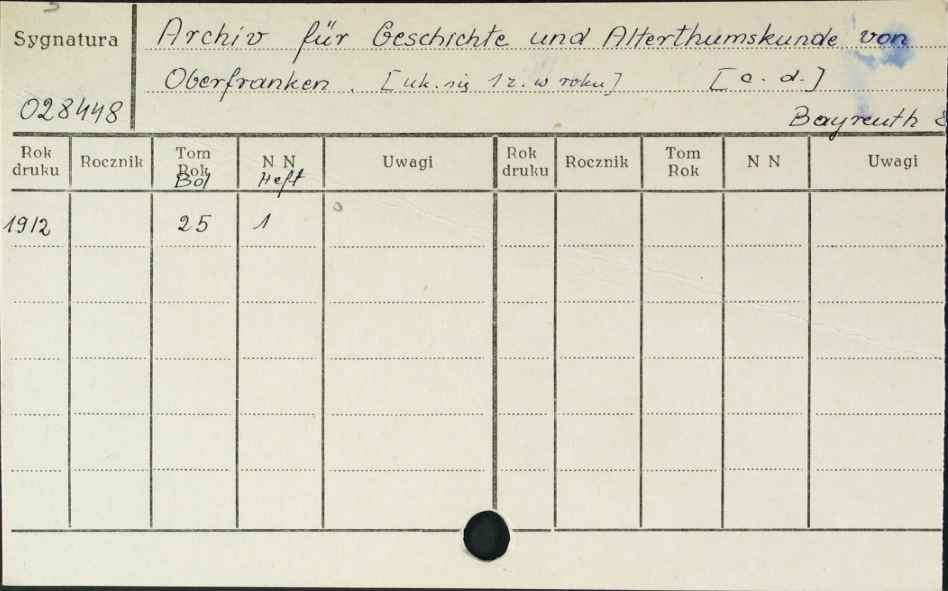 Sygnatura
Archiv für Geschichte und Alterthumskunde von
Oberfranken. [uk. się 1 r. w roku] [c. d.]
028448
Bayreuth
Rok druku Rocznik Tom Rok Bd N N Heft Uwagi Rok druku Rocznik Tom Rok N N Uwagi
1912 25 1